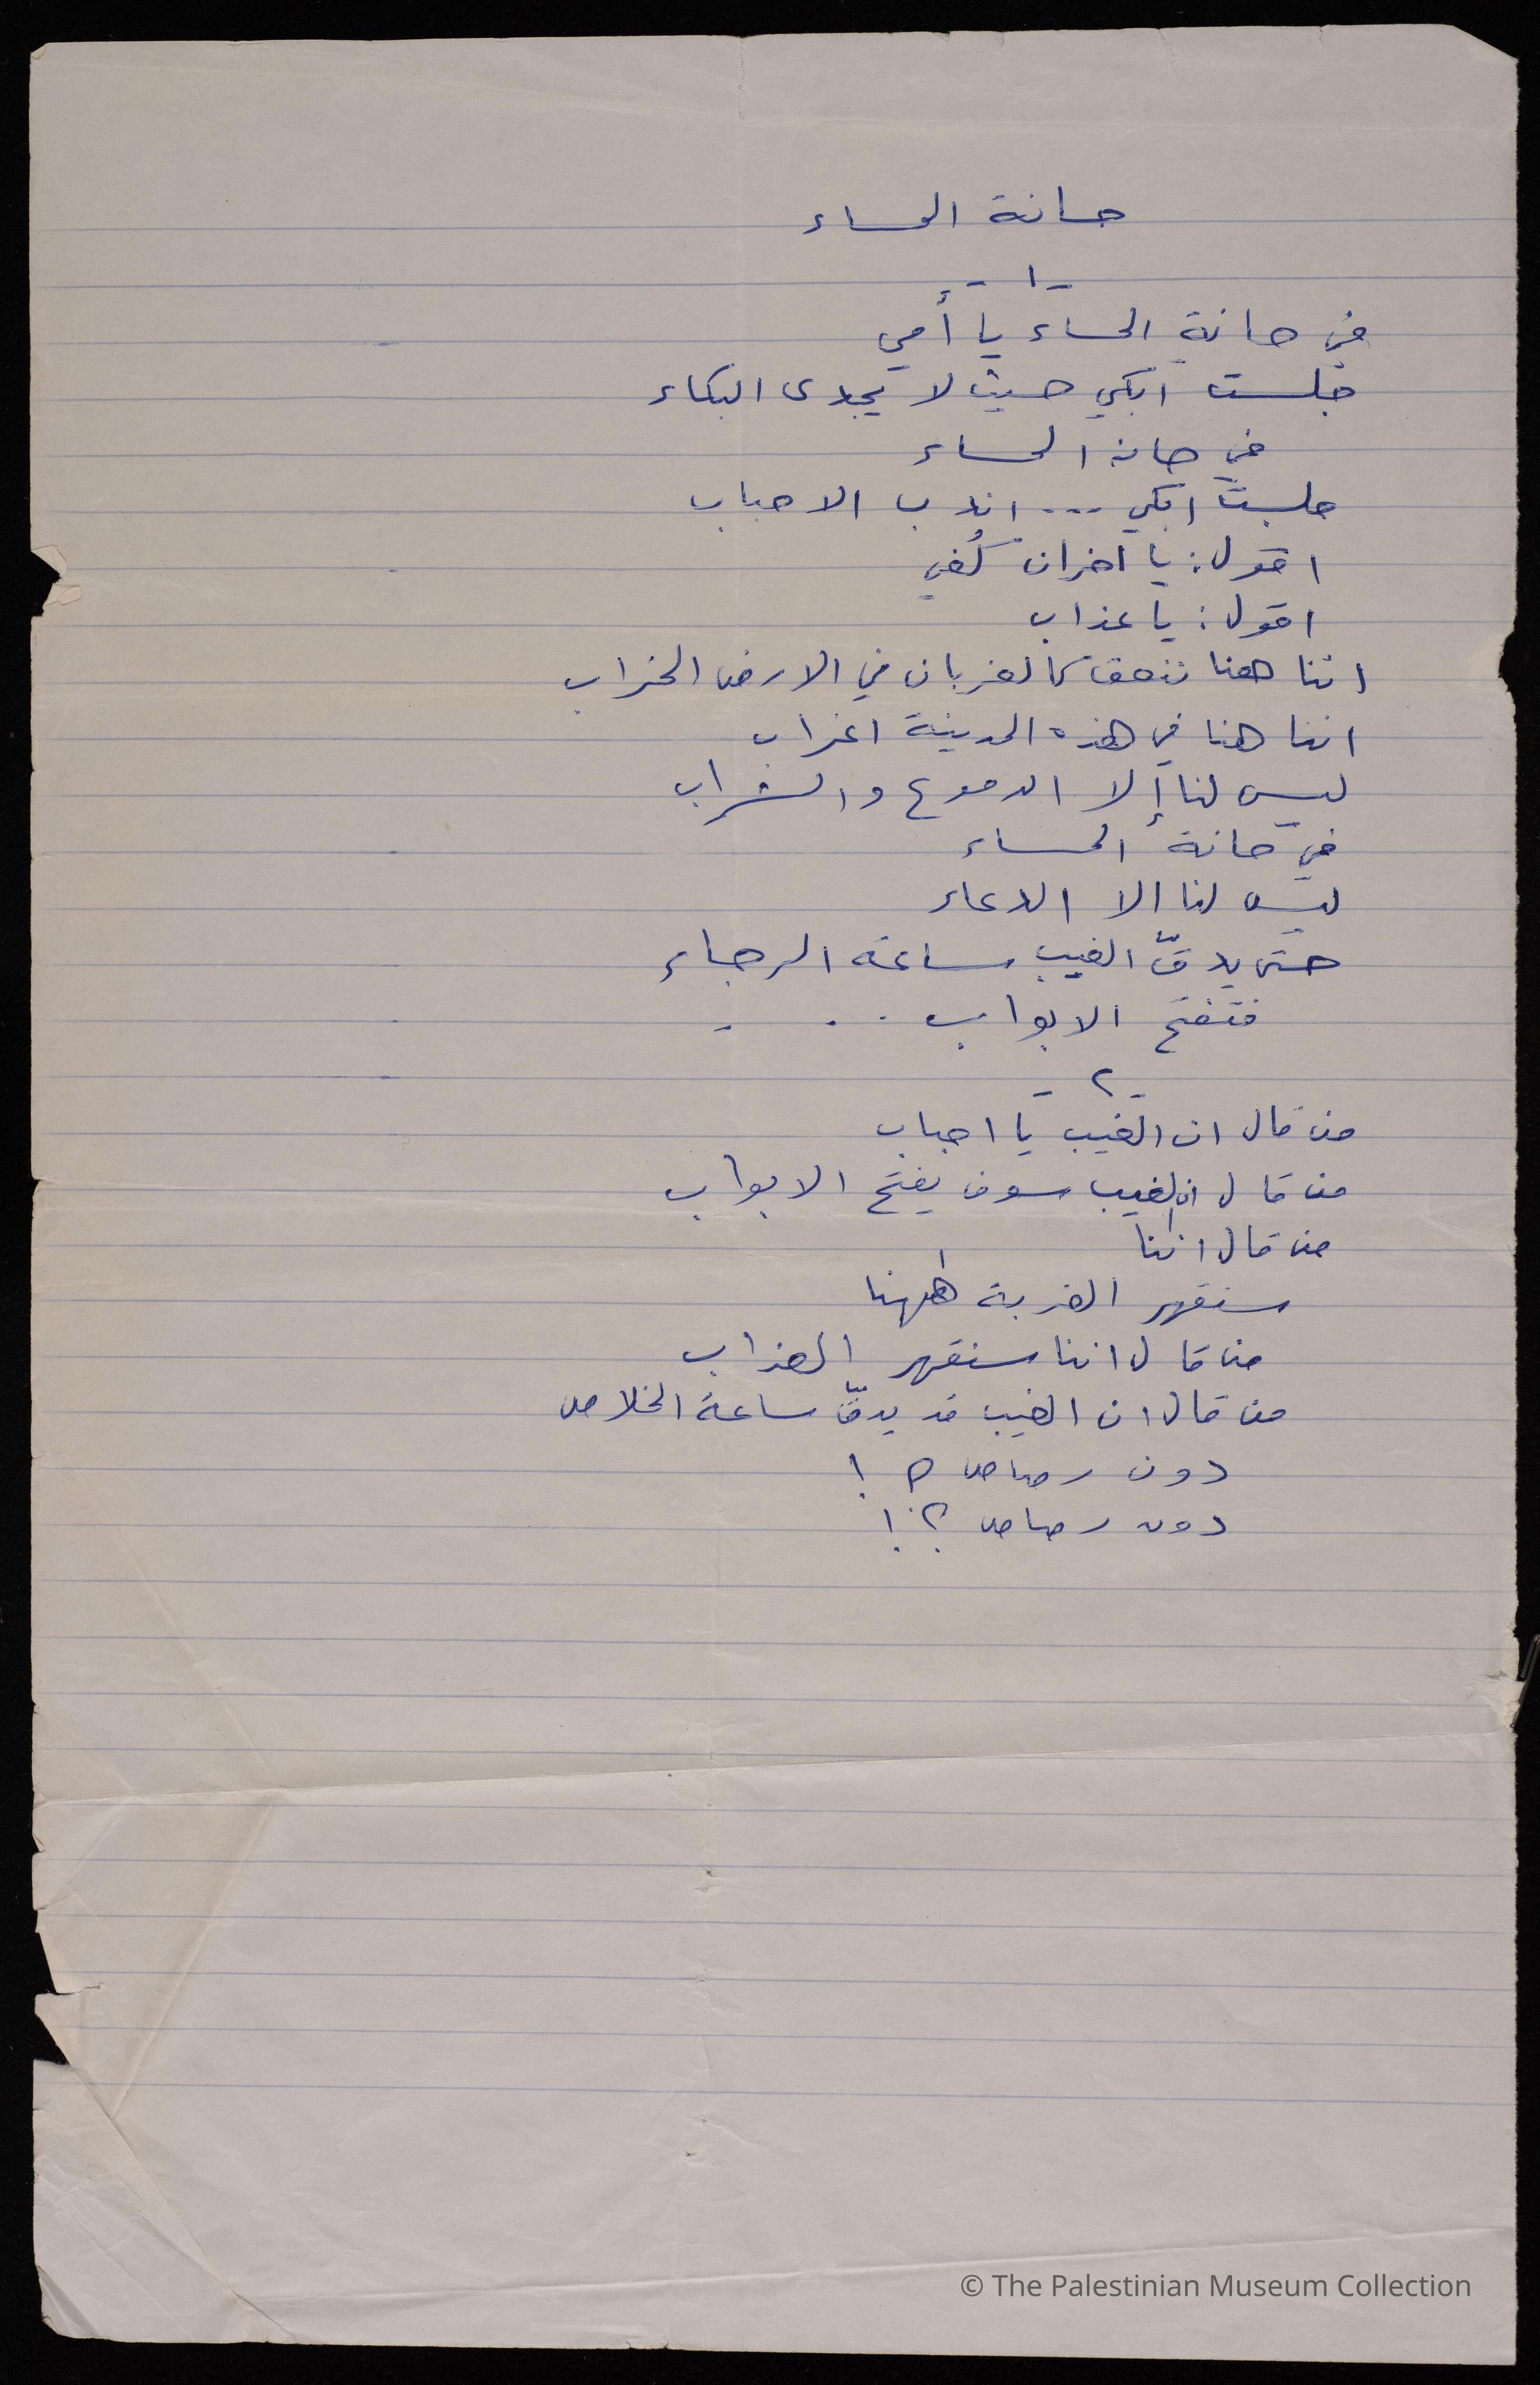 حانة المساء
- ١ -
في حانة المساء يا أمي
جلست ابكي حيث لا يجدى البكاء
في حانة المساء
جلست ابكي ... اندب الاحباب
اقول: يا احزان كُفي
اقول: يا عذاب
اننا هنا ننعق كالغربان في الارض الخراب
اننا هنا في هذه المدينة اغراب
ليس لنا إلا الدموع والشراب
في حانة المساء
ليس لنا الا الدعاء
حتى يدقّ الغيب ساعة الرجاء
فتفتح الابواب . . .
- ٢ -
من قال ان الغيب يا احباب
من قال ان الغيب سوف يفتح الابواب
من قال اننا
سنقهر الغربة ههنا
من قال اننا سنقهر العذاب
من قال ان الغيب قد يدقّ ساعة الخلاص
دون رصاص ؟!
دون رصاص ؟!
© The Palestinian Museum Collection